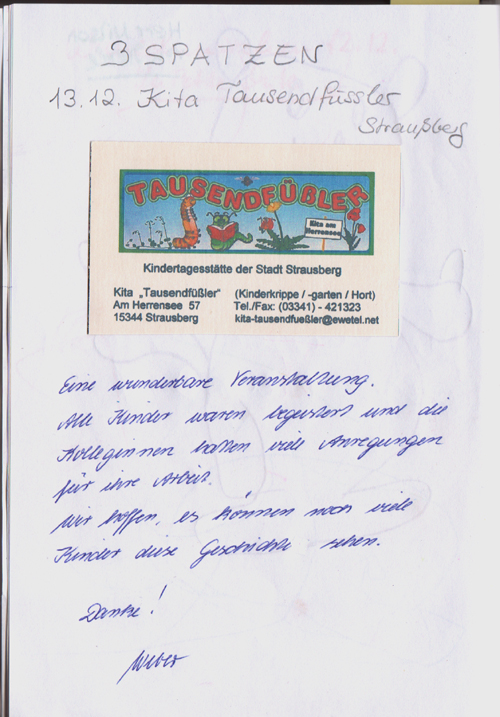 3 SPATZEN
13.12. Kita Tausendfüssler
Straußberg
TAUSENDFÜßLER
Kita am
Herrensee
Kindertagesstätte der Stadt Strausberg
Kita „Tausendfüßler" (Kinderkrippe / -garten / Hort)
Am Herrensee 57 Tel./Fax: (03341) - 421323
15344 Strausberg kita-tausendfueßler@ewetel.net
Eine wunderbare Veranstaltung.
Alle Kinder waren begeistert und die
Kolleginnen hatten viele Anregungen
für ihre Arbeit.
Wir hoffen, es können noch viele
Kinder diese Geschichte sehen.
Danke!
Weber